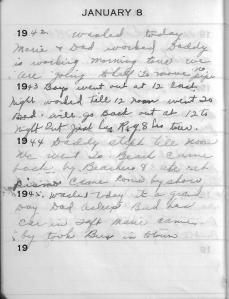 JANUARY 8
1942. washed today
Marie & Dad worked Daddy
is working morning time we
are going to
1943 Boys went out at 12 last
night worked till 12 noon went to
Bed will go back out at 12 to
night Put Just
1944 Daddy slept till noon
We went to Beach Came
back by Beaches & ate
Came home by show
1945. washed today it a grand
day Dad asleep Bud has
car in Taft Marie came
by took Bus in town
19